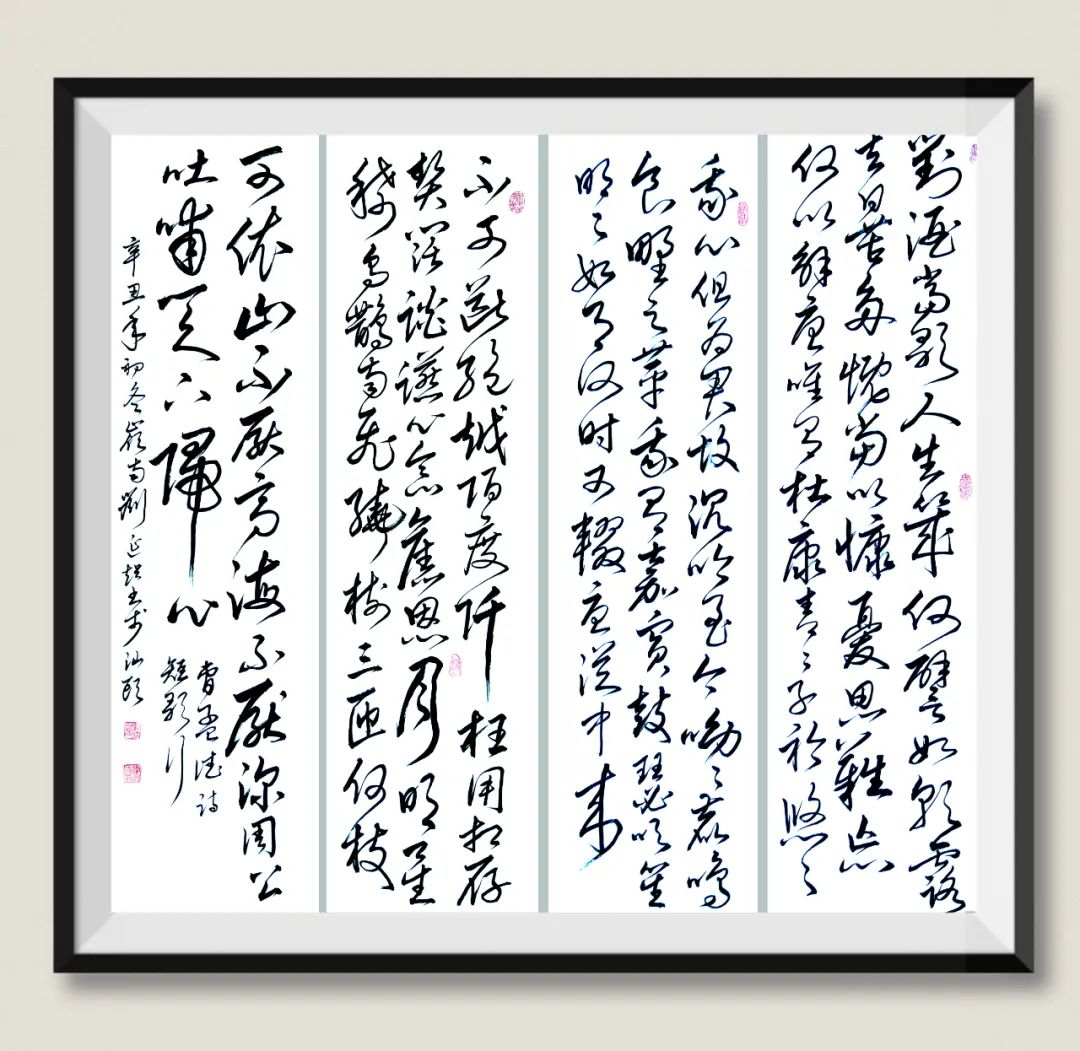 對酒當歌人生幾何譬如朝露
去日苦多慨當以慷憂思難忘
何以解憂唯有杜康青〻子衿悠〻
我心但为君故沉吟至今呦〻鹿鳴
食野之苹我有嘉賓鼓瑟吹笙
明〻如月何时可掇憂從中来
不可斷絕越陌度阡枉用相存
契闊談讌心念舊恩月明星
稀烏鵲南飛繞樹三匝何枝
可依山不厭高海不厭深周公
吐哺天下歸心
曹孟德詩
短歌行
辛丑年初冬嶺南劉延超书於汕頭